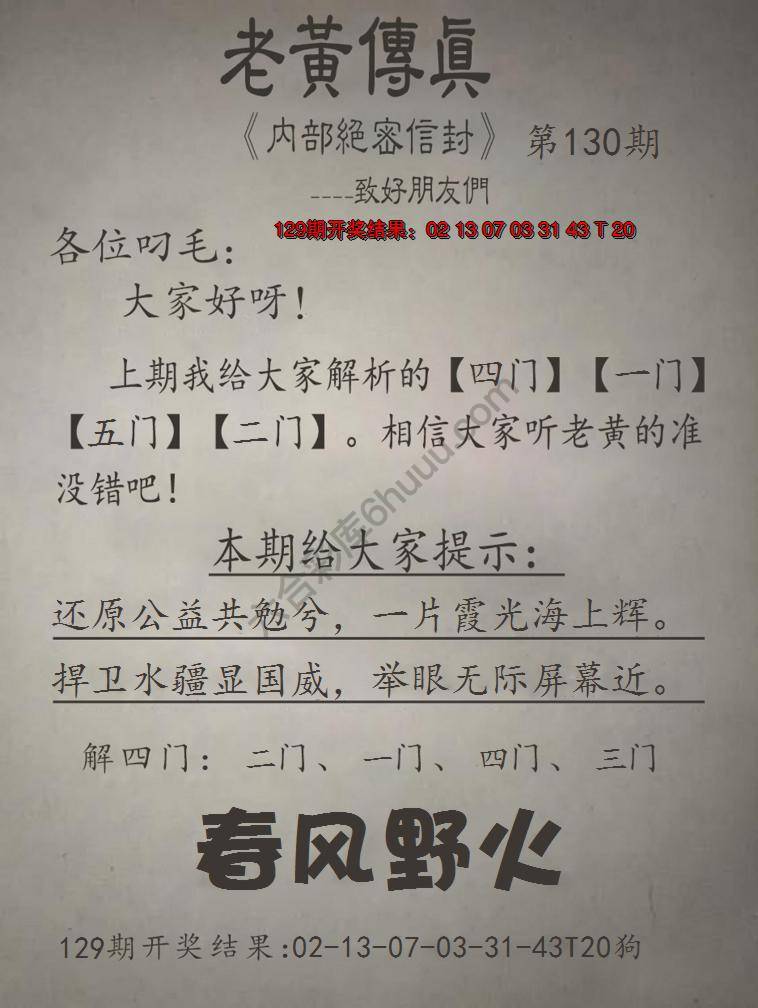 老黃傳真
《内部絕密信封》 第130期
----致好朋友們
129期开奖结果：02 13 07 03 31 43 T 20
各位叼毛：
大家好呀！
上期我给大家解析的【四门】【一门】
【五门】【二门】。相信大家听老黄的准
没错吧！
本期给大家提示：
还原公益共勉兮，一片霞光海上辉。
捍卫水疆显国威，举眼无际屏幕近。
解四门：二门、一门、四门、三门
春风野火
129期开奖结果:02-13-07-03-31-43T20狗
六合彩库6huuu.com